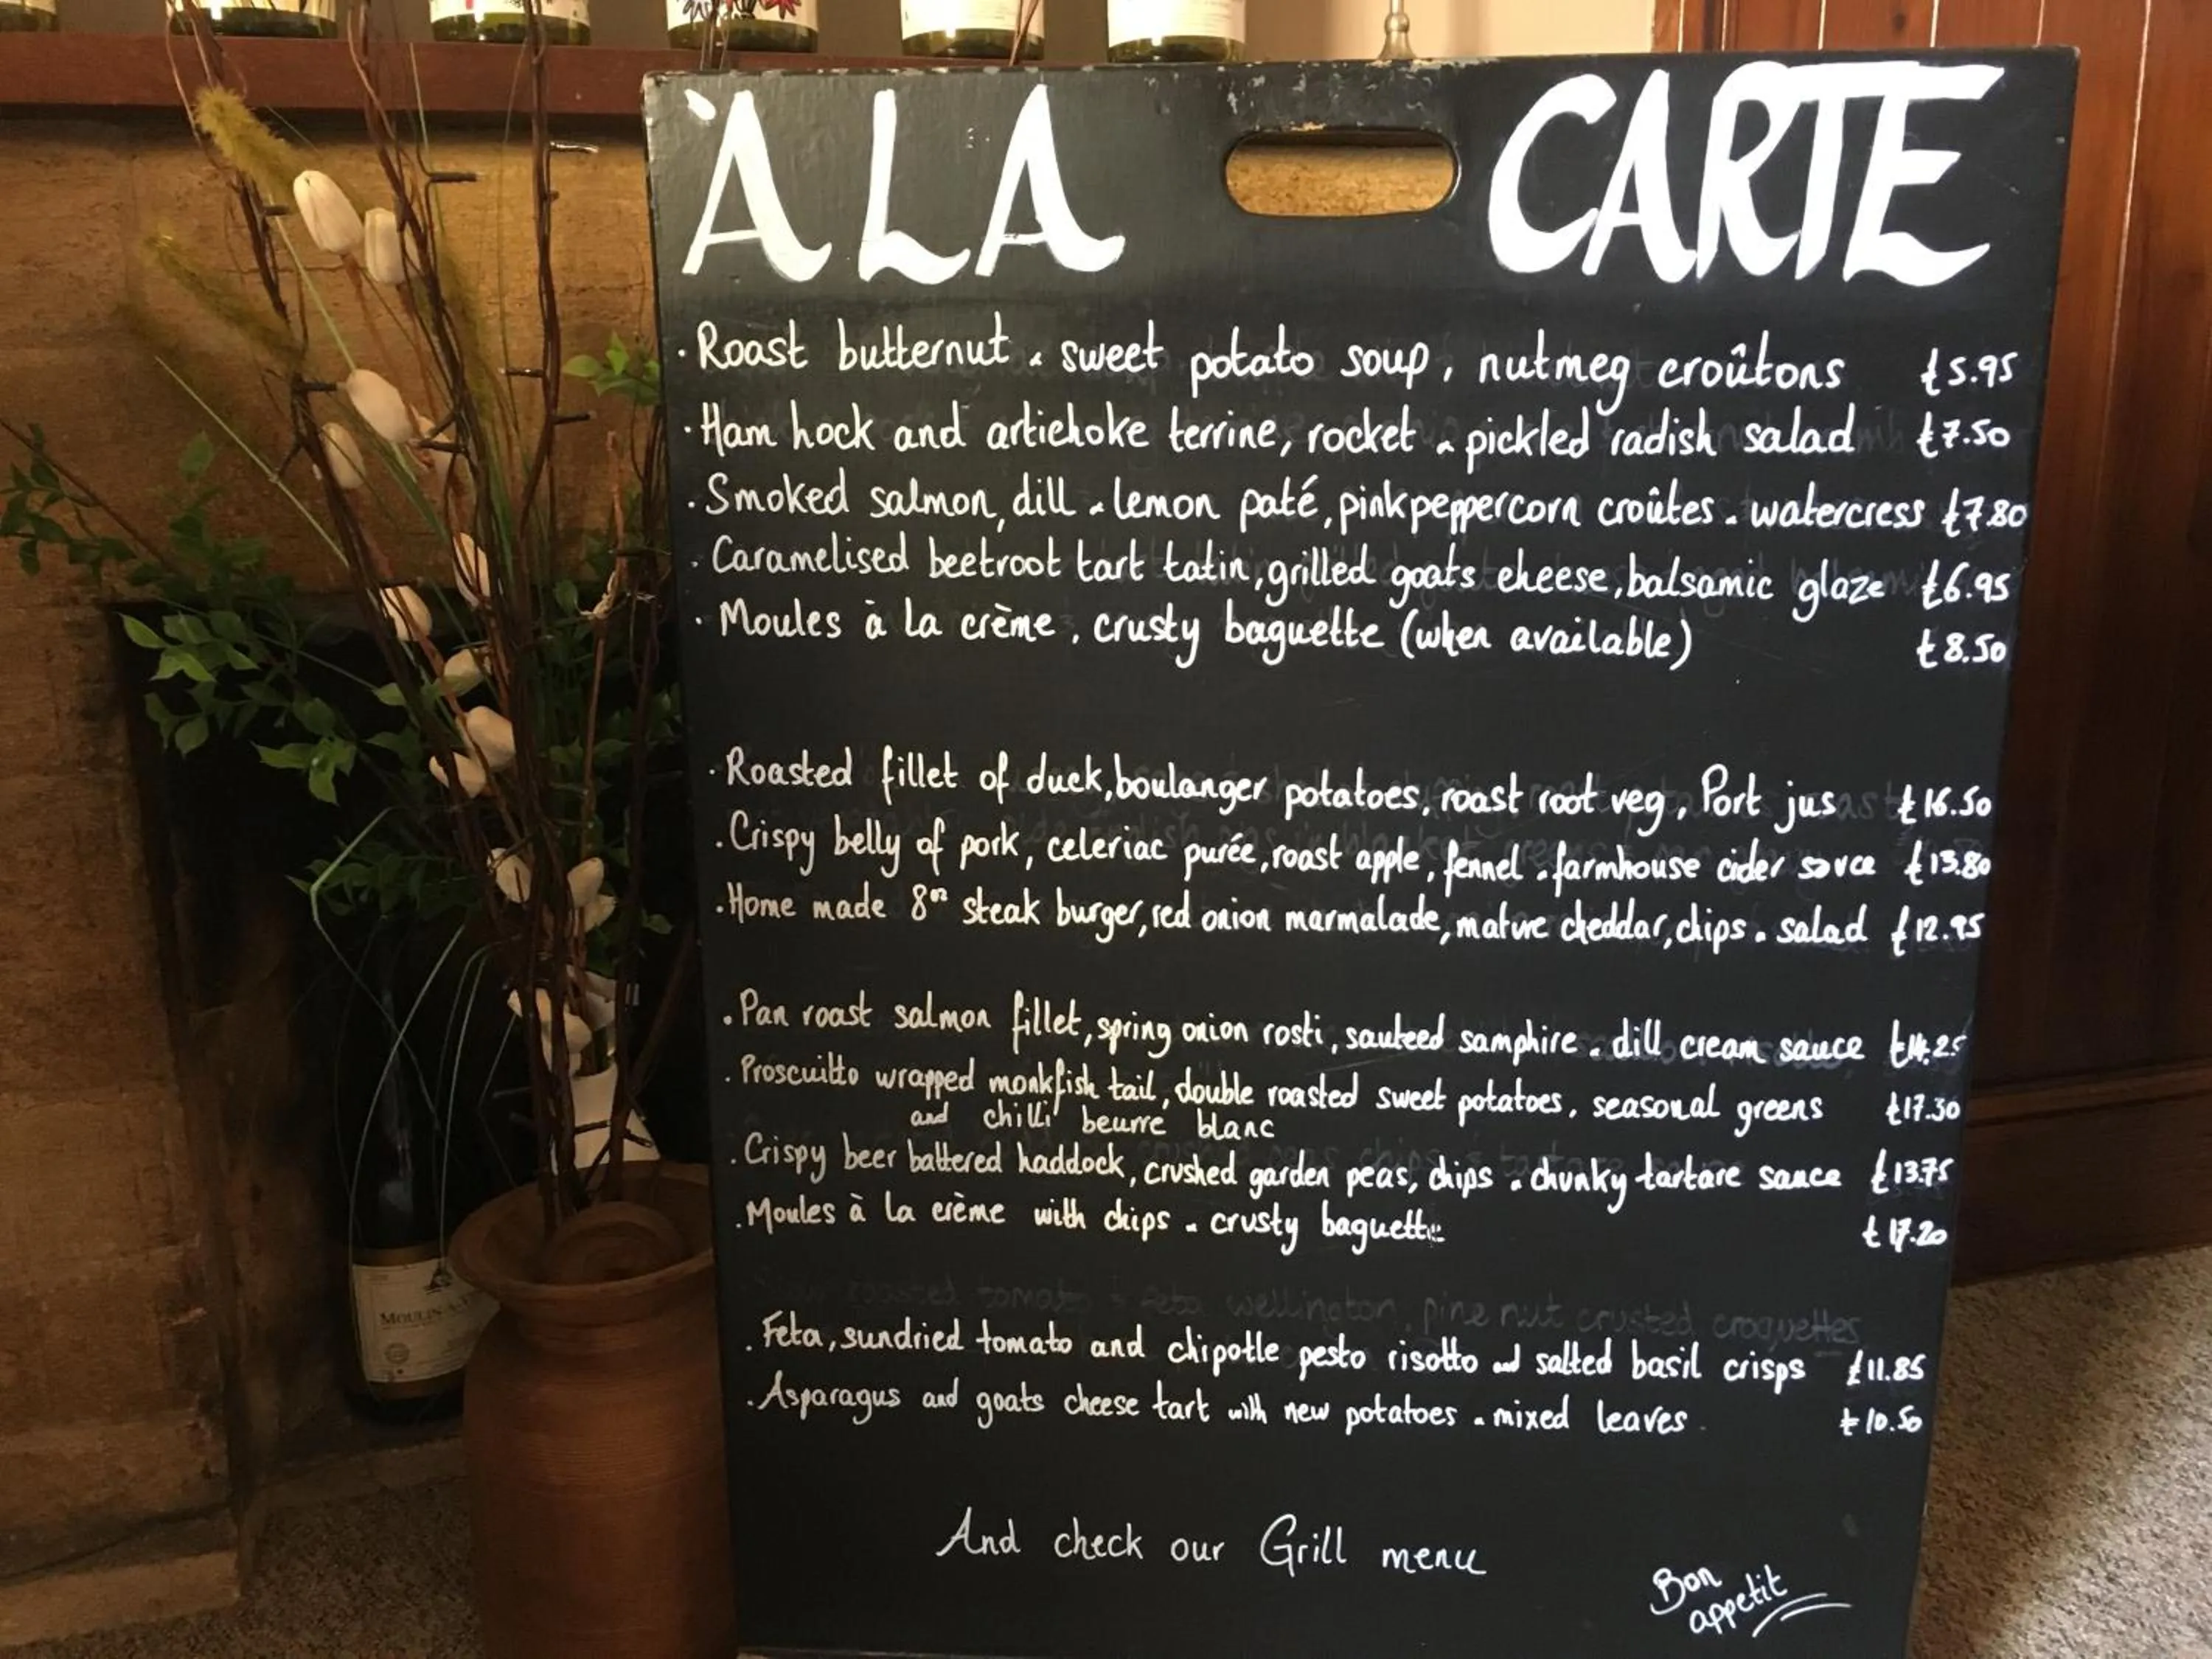 À LA CARTE
· Roast butternut & sweet potato soup, nutmeg croûtons £5.95
· Ham hock and artichoke terrine, rocket & pickled radish salad £7.50
· Smoked salmon, dill & lemon paté, pink peppercorn croûtes & watercress £7.80
· Caramelised beetroot tart tatin, grilled goats cheese, balsamic glaze £6.95
· Moules à la crème, crusty baguette (when available) £8.50
· Roasted fillet of duck, boulanger potatoes, roast root veg, Port jus £16.50
· Crispy belly of pork, celeriac purée, roast apple, fennel & farmhouse cider sauce £13.80
· Home made 8oz steak burger, red onion marmalade, mature cheddar, chips & salad £12.95
· Pan roast salmon fillet, spring onion rosti, sauteed samphire & dill cream sauce £14.25
· Proscuitto wrapped monkfish tail, double roasted sweet potatoes, seasonal greens £17.30
and chilli beurre blanc
· Crispy beer battered haddock, crushed garden peas, chips & chunky tartare sauce £13.75
· Moules à la crème with chips & crusty baguette £17.20
roasted tomato & feta wellington, pine nut crusted croquettes
· Feta, sundried tomato and chipotle pesto risotto and salted basil crisps £11.85
· Asparagus and goats cheese tart with new potatoes & mixed leaves £10.50
And check our Grill menu
Bon
appetit
MOULIN-À-V